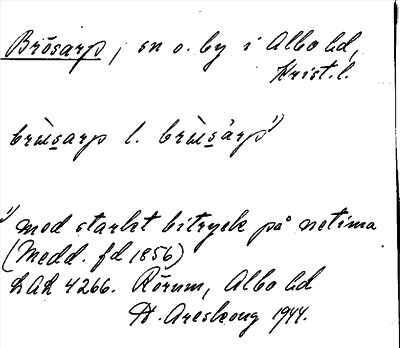 Brösarp, sn o. by i Albo hd,
Krist. l.
brùsarp l. brùsàrp¹⁾
¹⁾ med starkt bitryck på
(Medd. fd 1856)
LAL 4266. Rörum, Albo hd
H. Areskoug 1944.